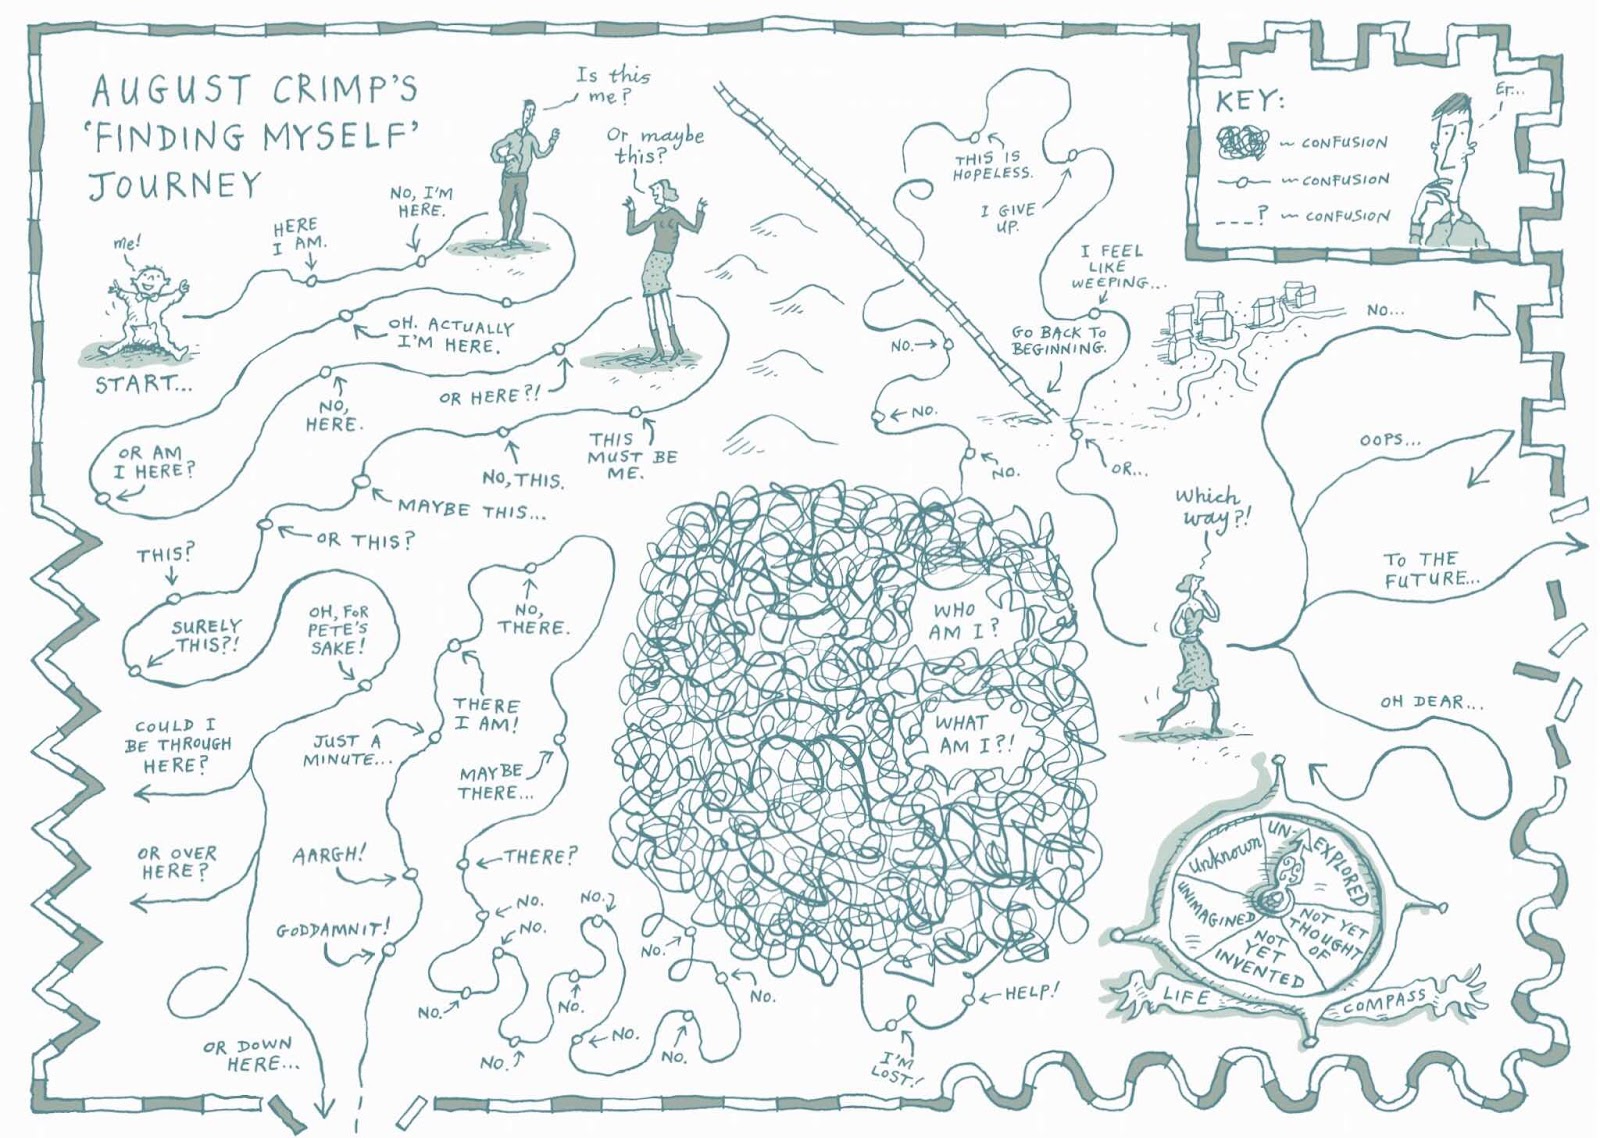 AUGUST CRIMP'S
'FINDING MYSELF'
JOURNEY
me!
START...
HERE
I AM.
NO, I'M
HERE.
Is this
me?
Or maybe
this?
OH. ACTUALLY
I'M HERE.
OR HERE?!
NO,
HERE.
OR AM
I HERE?
THIS
MUST BE
ME.
NO, THIS.
MAYBE THIS...
OR THIS?
THIS?
SURELY
THIS?!
OH, FOR
PETE'S
SAKE!
COULD I
BE THROUGH
HERE?
OR OVER
HERE?
OR DOWN
HERE...
GODDAMNIT!
AARGH!
JUST A
MINUTE...
THERE
I AM!
NO,
THERE.
MAYBE
THERE...
THERE?
NO.
NO.
NO.
NO.
NO.
NO.
NO.
NO.
NO.
NO.
WHO
AM I?
WHAT
AM I?!
I'M
LOST!
HELP!
NO.
NO.
NO.
THIS IS
HOPELESS.
I GIVE
UP.
I FEEL
LIKE
WEEPING...
GO BACK TO
BEGINNING.
OR...
Which
way?!
NO...
OOPS...
TO THE
FUTURE...
OH DEAR...
KEY:
~ CONFUSION
~ CONFUSION
? ~ CONFUSION
Er...
Unknown
UN-EXPLORED
NOT YET
THOUGHT
OF
NOT
YET
INVENTED
UNIMAGINED
LIFE
COMPASS